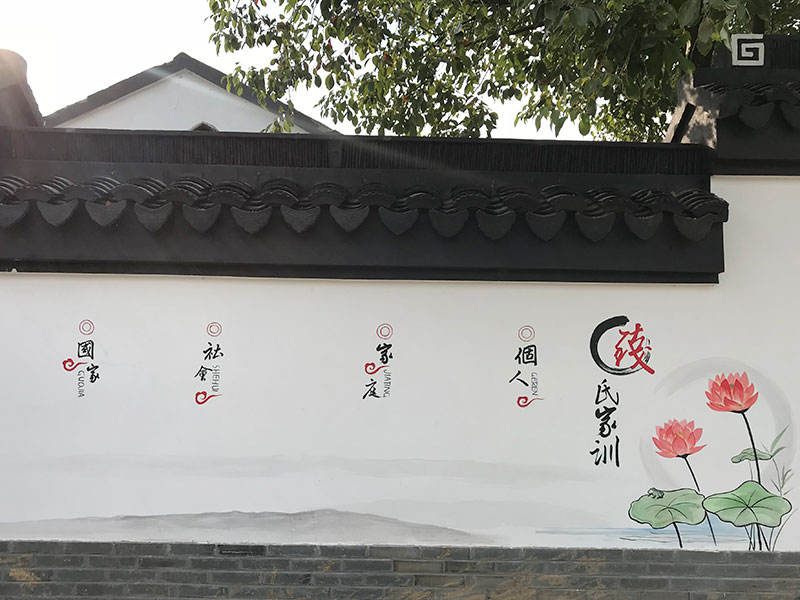 錢氏家训
個人
GEREN
家庭
JIATING
社會
SHEHUI
國家
GUOJIA